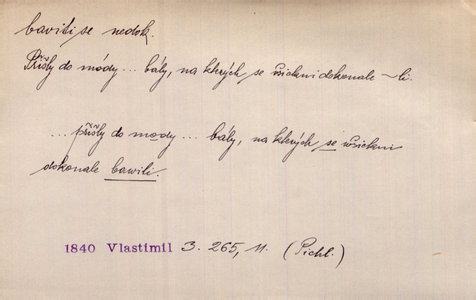 baviti se nedok.
Přišly do módy... bály, na kterých se všickni dokonale ~li.
... přišly do mody... bály, na kterých se wšickni
dokonale bawili.
1840 Vlastimil 3. 265, 11. (Pichl.)